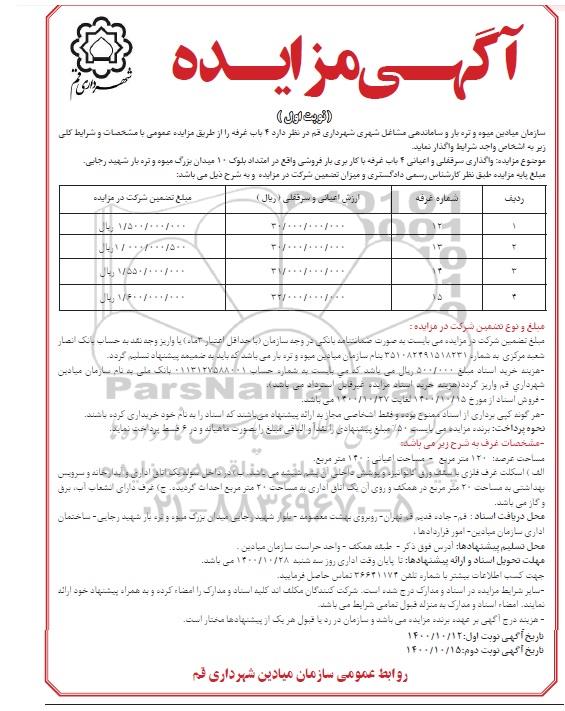 آگهی مزایده
شهرداری قم
(نوبت اول)
سازمان میادین میوه و تره بار و ساماندهی مشاغل شهری شهرداری قم در نظر دارد ۴ باب غرفه را از طریق مزایده عمومی با مشخصات و شرایط کلی
زیر به اشخاص واجد شرایط واگذار نماید.
موضوع مزایده: واگذاری سرقفلی و اعیانی ۴ باب غرفه با کاربری بار فروشی واقع در امتداد بلوک ۱۰ میدان بزرگ میوه و تره بار شهید رجایی.
مبلغ پایه مزایده طبق نظر کارشناس رسمی دادگستری و میزان تضمین شرکت در مزایده و به شرح ذیل می باشد:
ردیف شماره غرفه ارزش اعیانی و سرقفلی ( ریال ) مبلغ تضمین شرکت در مزایده
۱ ۱۲ ۳۰/۰۰۰/۰۰۰/۰۰۰ ۱/۵۰۰/۰۰۰/۰۰۰ ریال
۲ ۱۳ ۳۰/۰۰۰/۰۰۰/۰۰۰ ۱/۰۰۰/۰۰۰/۵۰۰ ریال
۳ ۱۴ ۳۱/۰۰۰/۰۰۰/۰۰۰ ۱/۵۵۰/۰۰۰/۰۰۰ ریال
۴ ۱۵ ۳۲/۰۰۰/۰۰۰/۰۰۰ ۱/۶۰۰/۰۰۰/۰۰۰ ریال
مبلغ و نوع تضمین شرکت در مزایده :
مبلغ تضمین شرکت در مزایده می بایست به صورت ضمانتنامه بانکی در وجه سازمان (با حداقل اعتبار ۳ماه) یا واریز وجه نقد به حساب بانک انصار
شعبه مرکزی به شماره ۳۵۱۰۸۲۴۹۱۵۱۸۲۳۱ بنام سازمان میادین میوه و تره بار می باشد که باید به ضمیمه پیشنهاد تسلیم گردد.
-هزینه خرید اسناد مبلغ ۵۰۰/۰۰۰ ریال می باشد که می بایست به شماره حساب ۰۱۱۳۱۲۷۵۸۸۰۰۱ بانک ملی به نام سازمان میادین
شهرداری قم واریز گردد(هزینه خرید اسناد مزایده غیرقابل استرداد می باشد).
- فروش اسناد از مورخ ۱۴۰۰/۱۰/۱۵ لغایت ۱۴۰۰/۱۰/۲۷ می باشد.
-هر گونه کپی برداری از اسناد ممنوع بوده و فقط اشخاصی مجاز به ارائه پیشنهاد می‌باشند که اسناد را به نام خود خریداری کرده باشند.
نحوه پرداخت: برنده مزایده می بایست ۵۰٪ مبلغ پیشنهادی را نقداً و الباقی مبلغ را بصورت ماهیانه و در ۶ قسط پرداخت نماید.
-مشخصات غرفه به شرح زیر می باشد:
مساحت عرصه: ۱۲۰ متر مربع - مساحت اعیانی: ۱۴۰ متر مربع.
الف ) اسکلت غرفه فلزی با سقف ورق گالوانیزه و پوشش داخلی آن پشم شیشه می باشد. ب)در داخل سوله یک اتاق اداری و آبدارخانه و سرویس
بهداشتی به مساحت ۲۰ متر مربع در همکف و روی آن یک اتاق اداری به مساحت ۲۰ متر مربع احداث گردیده. ج) غرف دارای انشعاب آب، برق
و گاز می باشد.
محل دریافت اسناد : قم- جاده قدیم قم تهران- روبروی بهشت معصومه - بلوار شهید رجایی-میدان بزرگ میوه و تره بار شهید رجایی- ساختمان
اداری سازمان میادین- امور قراردادها .
محل تسلیم پیشنهادها: آدرس فوق ذکر - طبقه همکف - واحد حراست سازمان میادین .
مهلت تحویل اسناد و ارائه پیشنهادها: تا پایان وقت اداری روز سه شنبه ۱۴۰۰/۱۰/۲۸ می باشد.
جهت کسب اطلاعات بیشتر با شماره تلفن ۳۶۶۴۱۱۷۴ تماس حاصل فرمایید.
-سایر شرایط مزایده در اسناد و مدارک درج شده است. شرکت کنندگان مکلف اند کلیه اسناد و مدارک را امضاء کرده و به همراه پیشنهاد خود ارائه
نمایند. امضاء اسناد و مدارک به منزله قبول تمامی شرایط می باشد.
- هزینه درج آگهی بر عهده برنده مزایده می باشد و سازمان در رد یا قبول هر یک از پیشنهادها مختار است.
تاریخ آگهی نوبت اول: ۱۴۰۰/۱۰/۱۲
تاریخ آگهی نوبت دوم: ۱۴۰۰/۱۰/۱۵
روابط عمومی سازمان میادین شهرداری قم